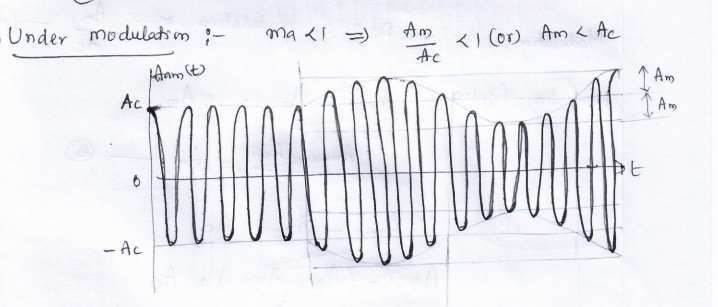 Under modulation :- ma < 1 ⇒ Am/Ac < 1 (or) Am < Ac
Aam(t)
Ac
Am
Am
0
t
- Ac